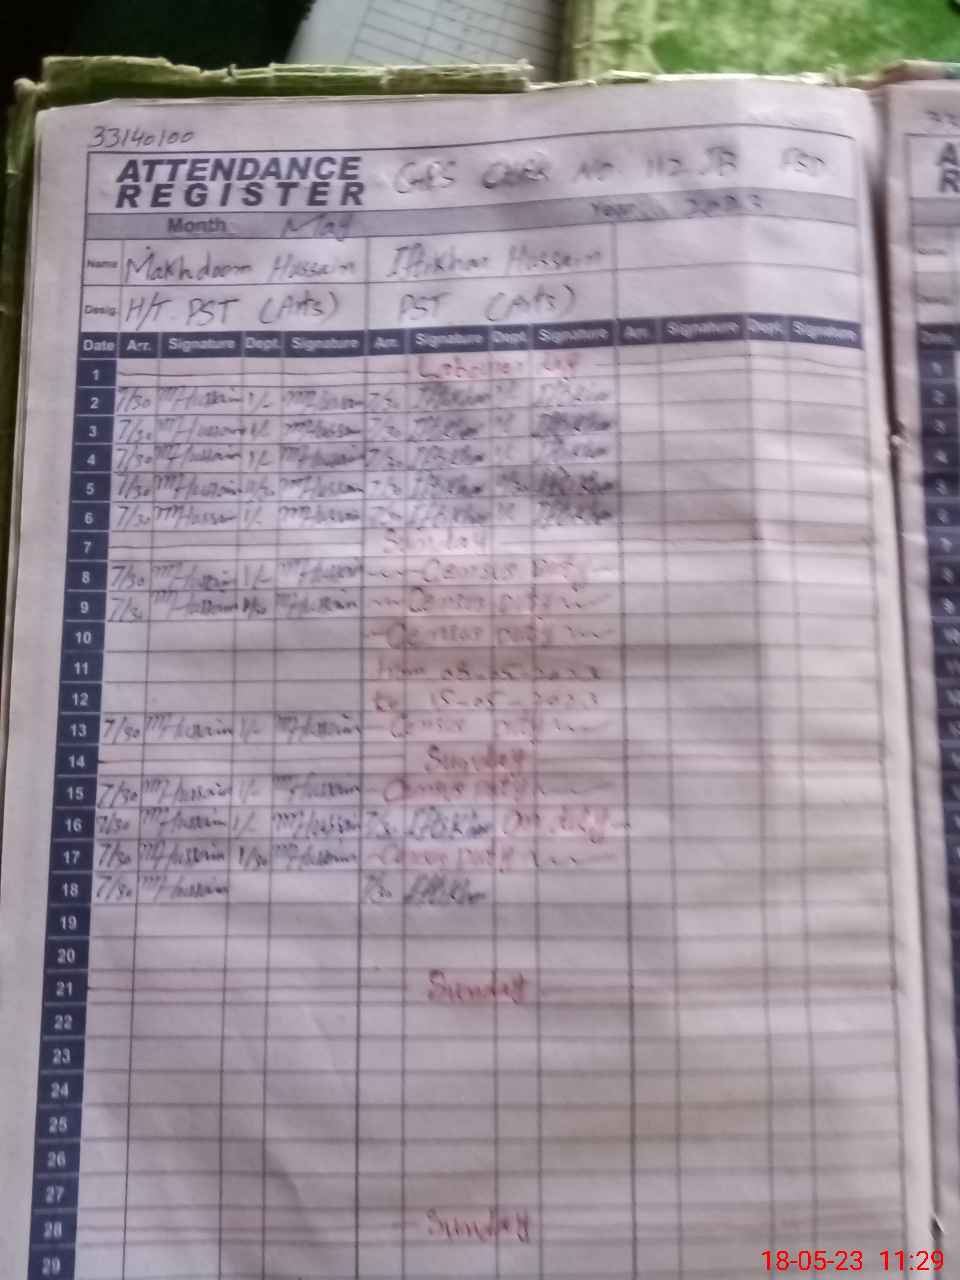 33140100
ATTENDANCE
REGISTER
GPS Chak No. 112 JB FSD
Month May Year 2023
Name Makhdoom Hussain Iftikhar Hussain
Desig. H/T. PST (Arts) PST (Arts)
Date Arr. Signature Dept. Signature Arr. Signature Dept. Signature Arr. Signature Dept. Signature
1 Labour day
2 7/30 MHussain 1/- MHussain 7/30 Iftikhar 1/- Iftikhar
3 7/30 MHussain 1/- MHussain 7/30 Iftikhar 1/- Iftikhar
4 7/30 MHussain 1/- MHussain 7/30 Iftikhar 1/- Iftikhar
5 7/30 MHussain MHussain 7/30 Iftikhar Iftikhar
6 7/30 MHussain 1/- MHussain 7/30 Iftikhar 1/- Iftikhar
7 Sunday
8 7/30 MHussain 1/- MHussain Census Duty
9 7/30 MHussain MHussain Census Duty
10 Census Duty
11 from 08-05-2023
12 to 15-05-2023
13 7/30 MHussain 1/- MHussain Census Duty
14 Sunday
15 7/30 MHussain 1/- MHussain Census Duty
16 7/30 MHussain 1/- MHussain 7/30 Iftikhar On duty
17 7/30 MHussain 1/30 MHussain Census Duty
18 7/30 MHussain 7/30 Iftikhar
19
20
21 Sunday
22
23
24
25
26
27
28 Sunday
29
18-05-23 11:29